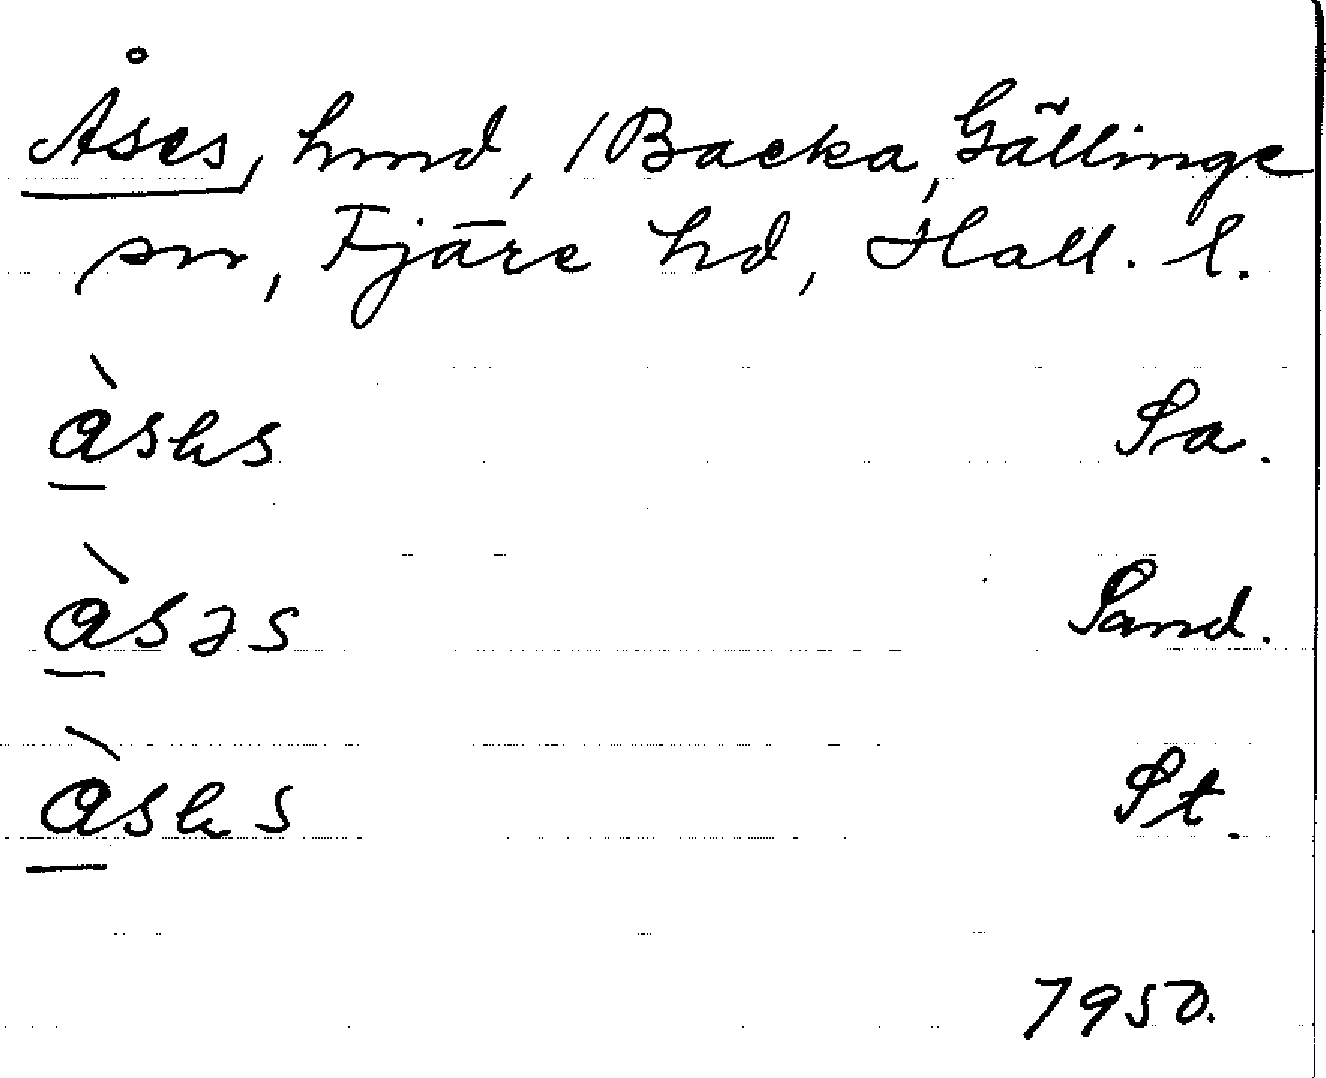 Åses, hmd, /Backa, Gällinge
sn, Fjäre hd, Hall. l.
àsɐs Sa.
àsəs Sand.
àsɐs St.
1950.